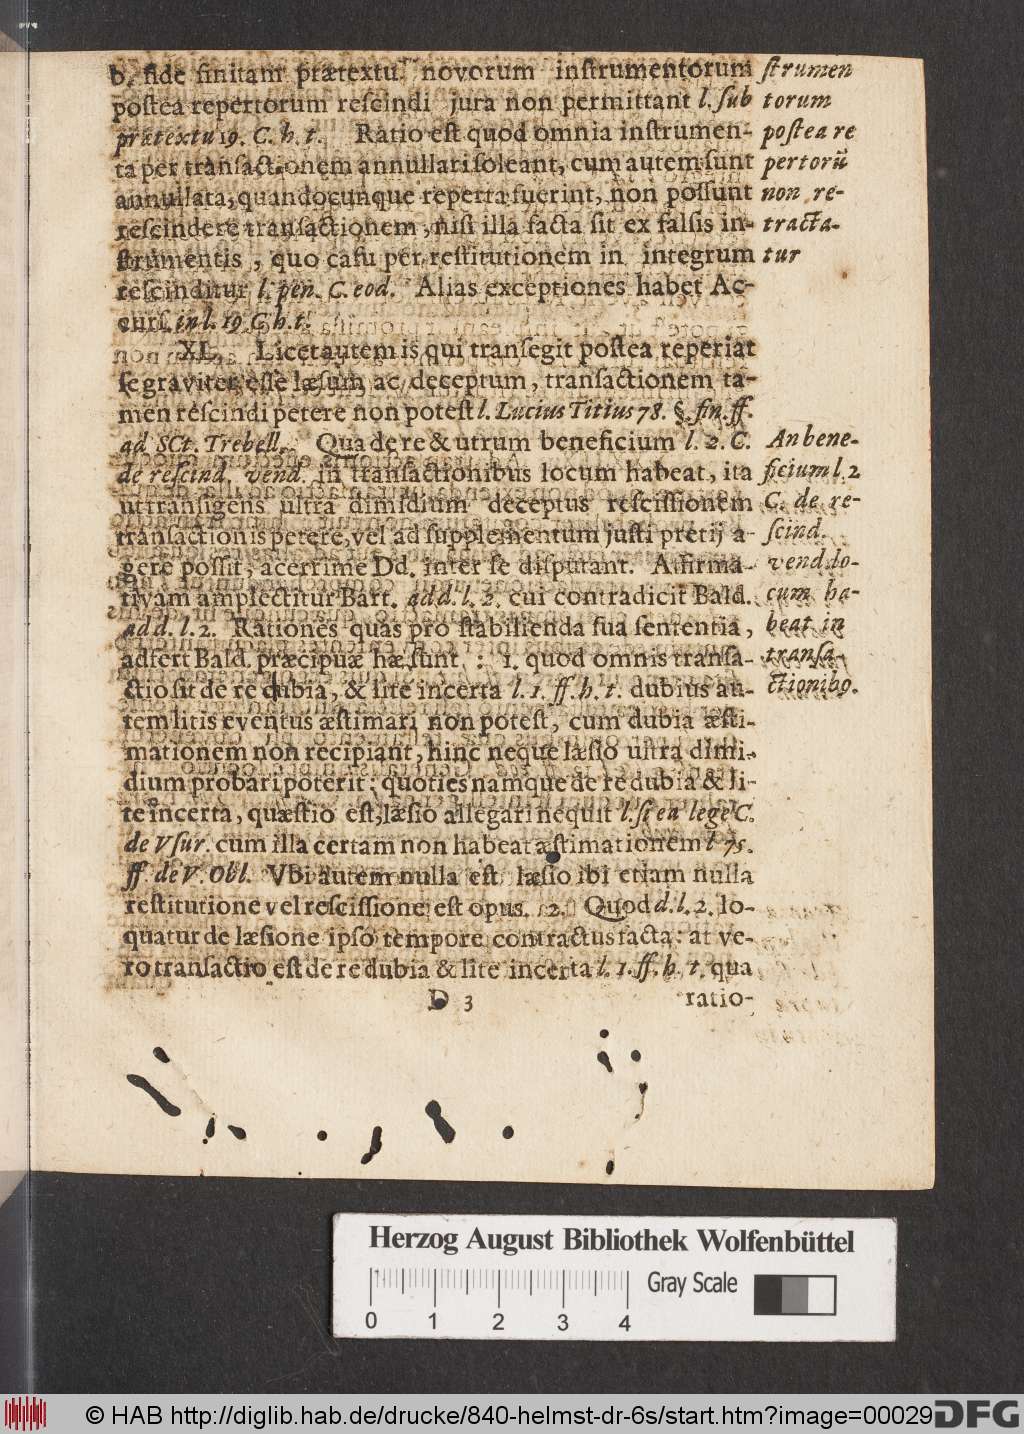 b. fide finitam prætextu novorum instrumentorum
postea repertorum rescindi jura non permittant l. sub
prætextu 19. C. h. t. Ratio est quod omnia instrumen-
ta per transactionem annullari soleant, cum autem sunt
annullata, quandocunque reperta fuerint, non possunt
rescindere transactionem, nisi illa facta sit ex falsis in-
strumentis, quo casu per restitutionem in integrum
rescinditur l. pen. C. eod. Alias exceptiones habet Ac-
curs. in l. 19. C. h. t.
strumen
torum
postea re
pertorũ
non re-
tracta-
tur
XL. Licet autem is, qui transegit postea reperiat
se graviter esse læsum ac deceptum, transactionem ta-
men rescindi petere non potest l. Lucius Titius 78. §. fin. ff.
ad SCt. Trebell. Qua de re & utrum beneficium l. 2. C.
de rescind. vend. in transactionibus locum habeat, ita
ut transigens ultra dimidium deceptus rescissionem
transactionis petere, vel ad supplementum justi pretij a-
gere possit, acerrime Dd. inter se disputant. Affirma-
tivam amplectitur Bart. add. l. 2. cui contradicit Bald.
add. l. 2. Rationes quas pro stabilienda sua sententia,
adfert Bald. præcipuæ hæ sunt : 1. quod omnis transa-
ctio sit de re dubia, & lite incerta l. 1. ff. h. t. dubius au-
tem litis eventus æstimari non potest, cum dubia æsti-
mationem non recipiant, hinc neque læsio ultra dimi-
dium probari poterit; quoties namque de re dubia & li-
te incerta, quæstio est, læsio allegari nequit l. si ea lege C.
de Vsur. cum illa certam non habeat æstimationem l 75.
ff. de V. Obl. Vbi autem nulla est læsio ibi etiam nulla
restitutione vel rescissione est opus. 2. Quod d. l. 2. lo-
quatur de læsione ipso tempore contractus facta: at ve-
ro transactio est de re dubia & lite incerta l. 1. ff. h. t. qua
An bene-
ficium l. 2
C. de re-
scind.
vend lo-
cum ha-
beat in
transa-
ctionib9.
D 3
ratio-
Herzog August Bibliothek Wolfenbüttel
Gray Scale
0 1 2 3 4
© HAB http://diglib.hab.de/drucke/840-helmst-dr-6s/start.htm?image=00029
DFG